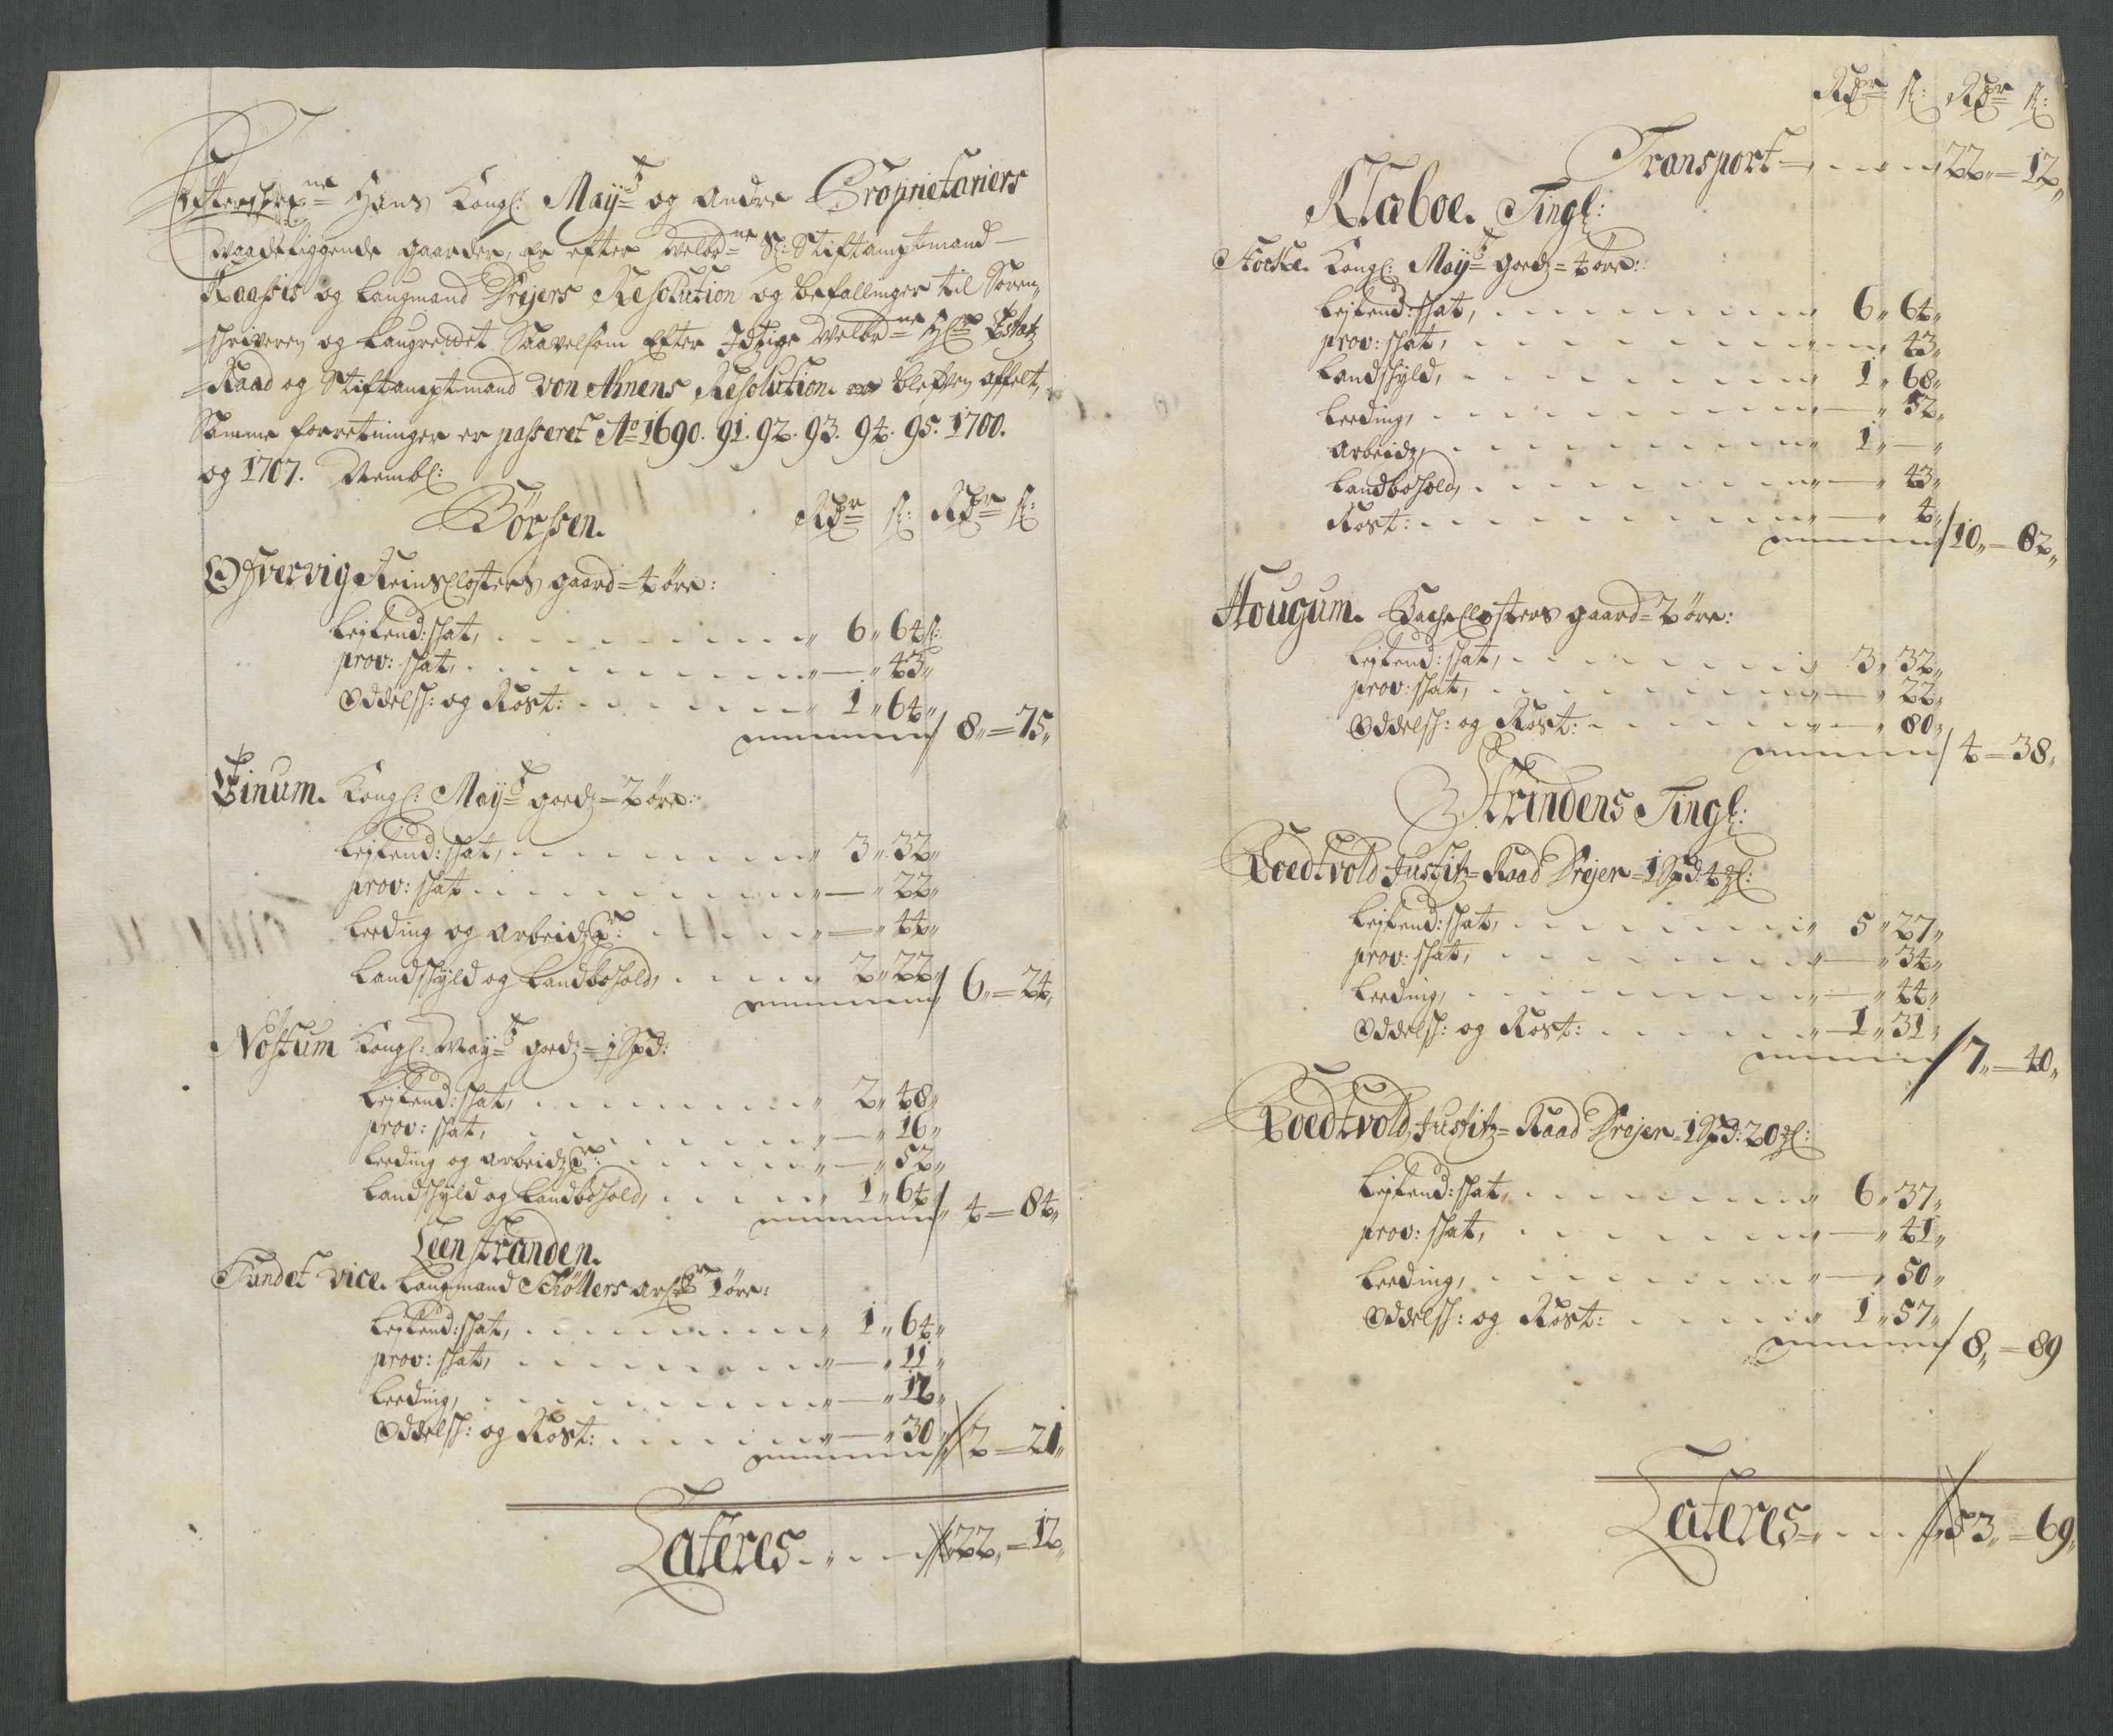 Efterschrefne Hans Kongl: Mayts og andre Proprietariers
Vaadeliggende gaarder, er efter velbrne Sl: Stiftamptmand
Kaassis og Laugmand Drejers Resolution og befallinger til Soren-
schriveren og Laugrettet Saavelsom Efter Itzige velbrne Hr Estatz
Raad og Stiftamptmand von Ahnens Resolution blefven affelt,
Samme forretninger er passeret Ao 1690. 91. 92. 93. 94. 95. 1700.
og 1707. Nembl:
Börssen. Rdr s: Rdr s:
Ofvervig Reinsclosters gaard = 4 öre:
Lejlend: schat, 6 " 64 s:
prov: schat, — " 43 "
Oddelsh: og Rost: 1 " 64 " / 8 " = 75 "
Einum. Kongl: Mayts goedz = 2 öre:
Lejlend: schat, 3 " 32 "
prov: schat — " 22 "
Leeding og arbeidzp: — " 44 "
Landschyld og Landbohold, 2 " 22 " / 6 " = 24 "
Nostum Kongl: Mayts goedz = 1 Spd:
Lejlend: schat, 2 " 48 "
prov: schat, — " 16 "
Leeding og arbeidzp: — " 52 "
Landschyld og Landbohold, 1 " 64 " / 4 = 84 "
Leenstranden.
Tundet vice. Laugmand Schöllers arf: 1 öre:
Lejlend: schat, 1 " 64 "
prov: schat, — " 11 "
Leeding, — " 12 "
Oddelsh: og Rost: — " 30 " / 2 = 21 "
Lateres 22 " = 12 "
Rdr s: Rdr s:
Transport 22 " = 12 "
Klæboe. Tingl:
Stocke. Kongl: Mayts goedz = 4 öre:
Lejlend: schat, 6 " 64 "
prov: schat, — " 43 "
Landschyld, 1 " 68 "
Leeding, — " 52 "
Arbeidz, 1 " — "
Landbohold, — " 43 "
Rost: — " 4 " / 10 " = 82 "
Hougum. Bachecllosters gaard = 2 öre:
Lejlend: schat, 3 " 32 "
prov: schat, — " 22 "
Oddelsh: og Rost: — " 80 " / 4 = 38 "
Strindens Tingl:
Loedtvold Justitz = Raad Drejer = 1 Spd: 4 ml:
Lejlend: schat, 5 " 27 "
prov: schat, — " 34 "
Leeding, — " 44 "
Oddelsh: og Rost: 1 " 31 " / 7 " = 40 "
Loedtvold, Justitz = Raad Drejer = 1 Spd: 20 ml:
Lejlend: schat, 6 " 37 "
prov: schat, — " 41 "
Leeding, — " 50 "
Oddelsh: og Rost: 1 " 57 " / 8 " = 89
Lateres 53 " = 69 "